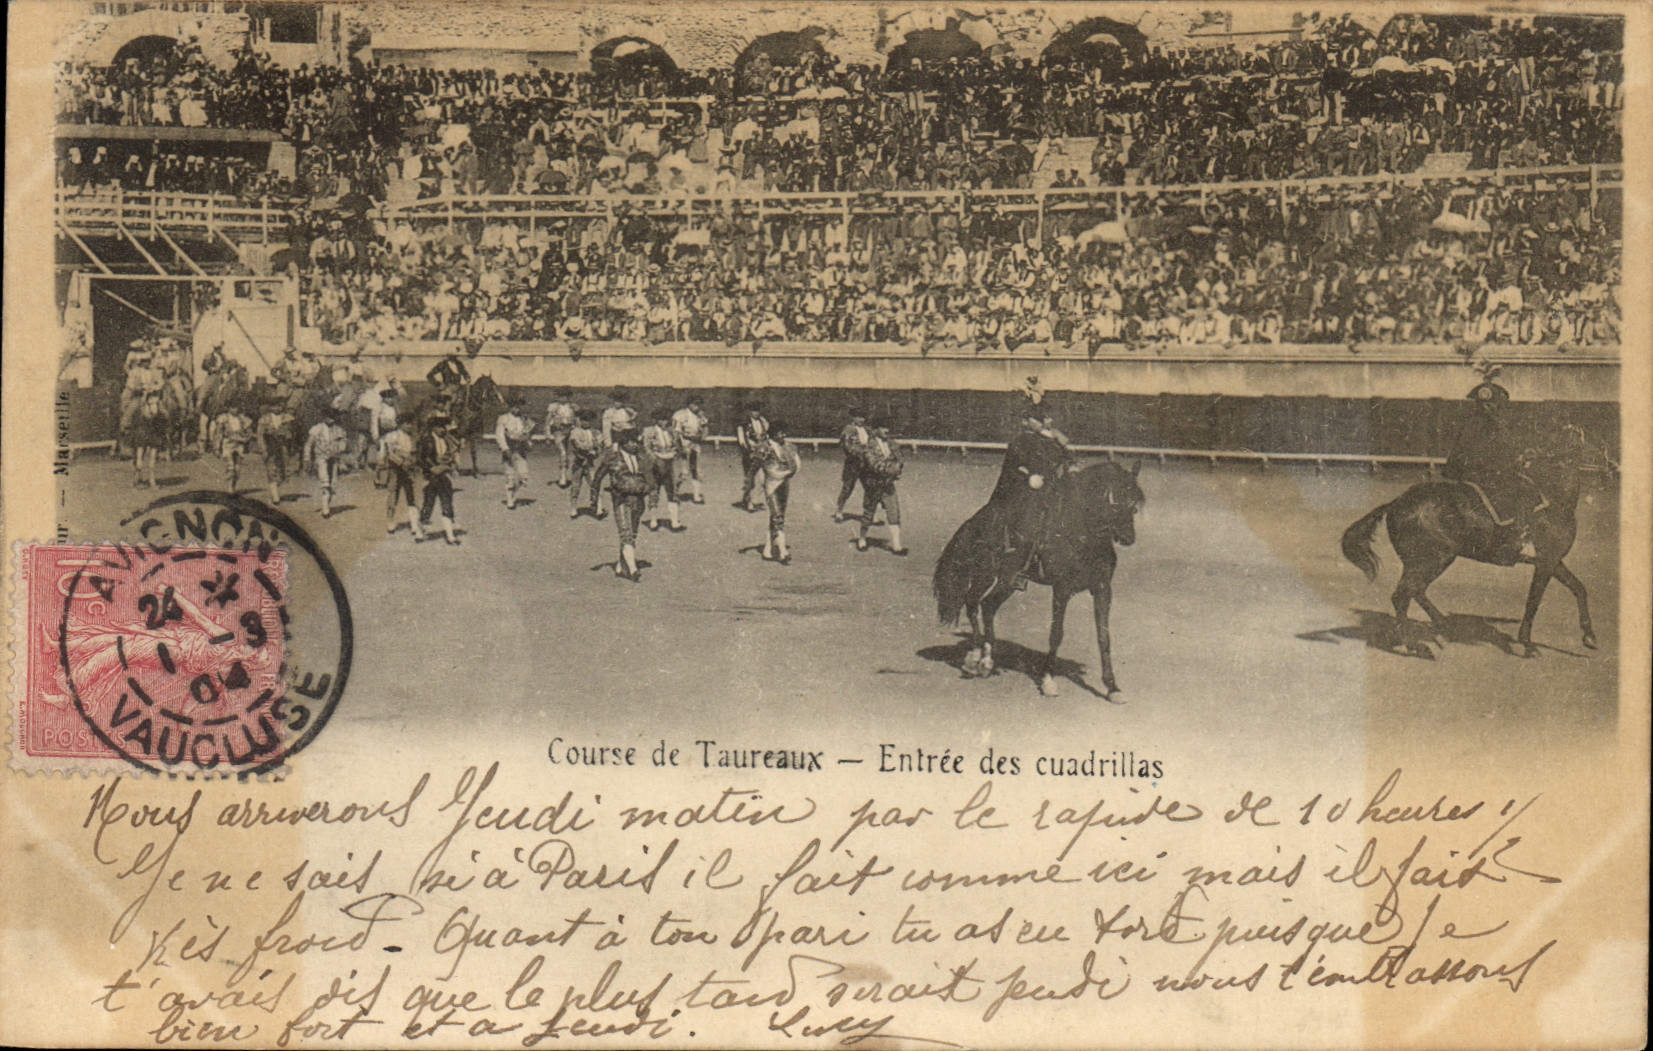 Marseille
AVIGNON
24
1 -3
04
VAUCLUSE
10 c
POSTES
Course de Taureaux — Entrée des cuadrillas
Nous arriverons Jeudi matin par le rapide de 10 heures 1/2
Je ne sais si à Paris il fait comme ici mais il fait
très froid - Quant à ton pari tu as eu tord puisque Je
t'avais dis que le plus tard serait jeudi nous t'embrassons
bien fort et a Jeudi. Lucy